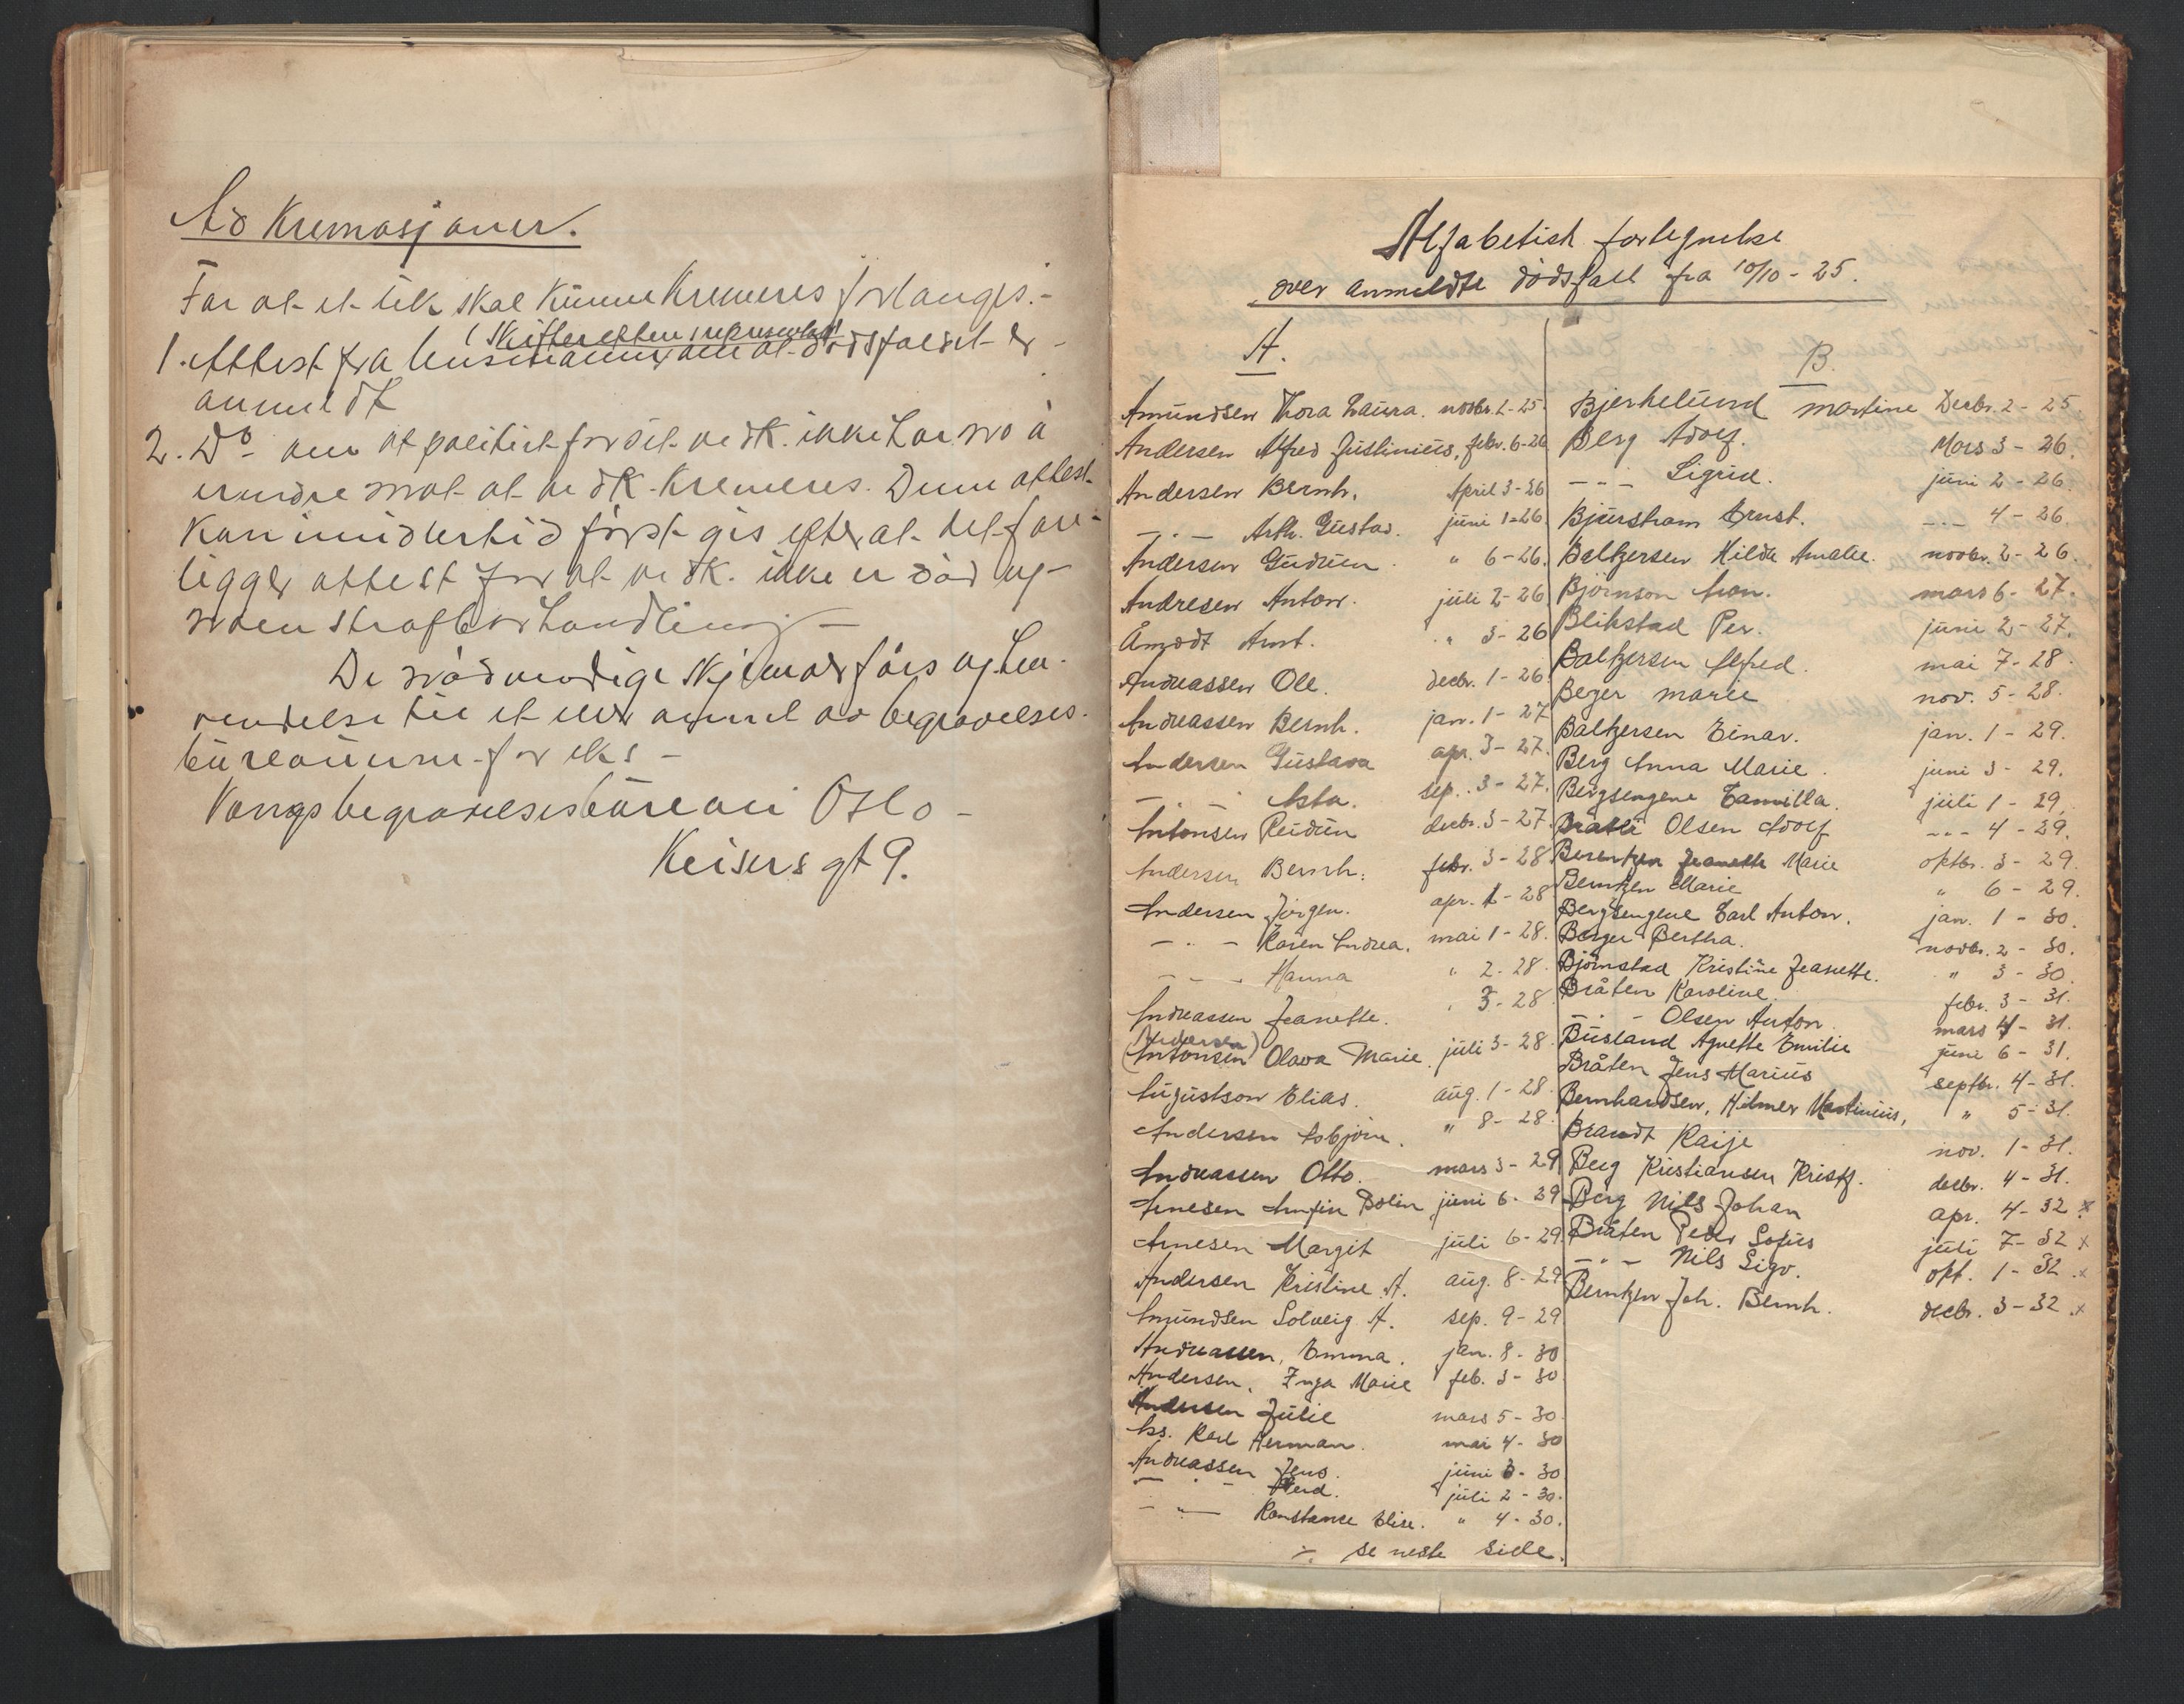 Ad Kremasjoner.
For at et lik skal kunne Kremeres forlanges.-
(Skifterettens representant
1. Attest fra lensmannen om at dødsfaldet er -
anmeldt
2. Do om at politiet for sit vedk. ikke har no å
erindre mot at vedk. Kremeres. Denne attest
kan imidlertid først gis efter at det fore-
ligger attest for at vedk. ikke er død ag
noen straffbar handling -
De nødvendige skjemaer fåes ag hen-
vendelse til et eller annet av begravelses-
büreauene for eks -
Vangs begravelsesbüreau Oslo -
Keisers gt 9.
Alfabetisk fortegnelse
over anmeldte dødsfall fra 10/10 - 25.
A.
Amundsen Thora Laura. novbr. 2-25.
Andersen Alfred Justinius, febr. 6-26
Andersen Bernh. April 3-26
- " - Arth. Gustav. juni 1-26
Andersen Gudrun " 6-26.
Andresen Anton. juli 2-26
Åmodt Amt. " 3-26
Andreassen Ole. decbr. 1-26.
Andreassen Bernh. jan. 1-27
Andersen Gustava apr. 3-27.
- " - Asta. sep. 3-27.
Antonsen Reidun decbr. 3-27.
Andersen Bernh. febr. 3-28
Andersen Jørgen. apr. 1-28
- " - Karen Andrea. mai 1-28.
- " - Hanna " 2-28.
Andreassen Jeanette. " 3-28
(Andersen)
(Antonsen Olava Marie. juli 3-28.
Augustson Elias. aug. 1-28.
Andersen Asbjørn. " 8-28.
Andreassen Otto. mars 3-29
Arnesen Arnfin Dolin juni 6-29
Arnesen Margit juli 6-29.
Andersen Kristine A. aug. 8-29
Amundsen Solveig A. sep. 9-29
Andreassen, Emma. jan. 8-30
Andersen, Inga Marie feb. 3-30
Andersen Julie mars 5-30.
Aas. Karl Herman. mai 4-30
Andreassen Jens. juni 3-30
- " - Ferd. juli 2-30.
- " - Konstanse Elise. " 4-30.
⁒ se neste side.
B.
Bjerkelund Martine Decbr. 2-25.
Berg Adolf. Mars 3-26.
- " - Sigrid. juni 2-26.
Bjurstrøm Ernst. - " - 4-26.
Baltzersen Hilda Amalie. novbr. 2-26.
Bjørnson Aron. mars 6-27.
Blikstad Per. juni 2-27.
Baltzersen Alfred. mai 7-28.
Beger Marie nov. 5-28.
Baltzersen Einar. jan. 1-29.
Berg Anna Marie. juni 3-29.
Bergsengene Camilla. juli 1-29.
Bråtli Olsen Adolf - " - 4-29.
Berentzen Jeanette Marie oktbr. 3-29.
Berntzen Marie " 6-29.
Bergsengene Carl Anton. jan. 1-30.
Berger Bertha. novbr. 2-30.
Bjørnstad Kristine Jeanette. " 3-30.
Bråten Karoline. febr. 3-31.
- " - Olsen Anton. mars 4-31.
Busland Agnette Emilie june 6-31.
Bråten Jens Marius septbr. 4-31.
Bernhardsen, Hilmer Martinius, " 5-31.
Brandt Kaije nov. 1-31.
Berg Kristiansen Kristf. decbr. 4-31.
Berg Nils Johan apr. 4-32 x
Bråten Peder Sofus juli 7-32 x
- " - Nils Sigv. okt. 1-32 x
Berntzen Joh. Bernh. decbr. 3-32 x